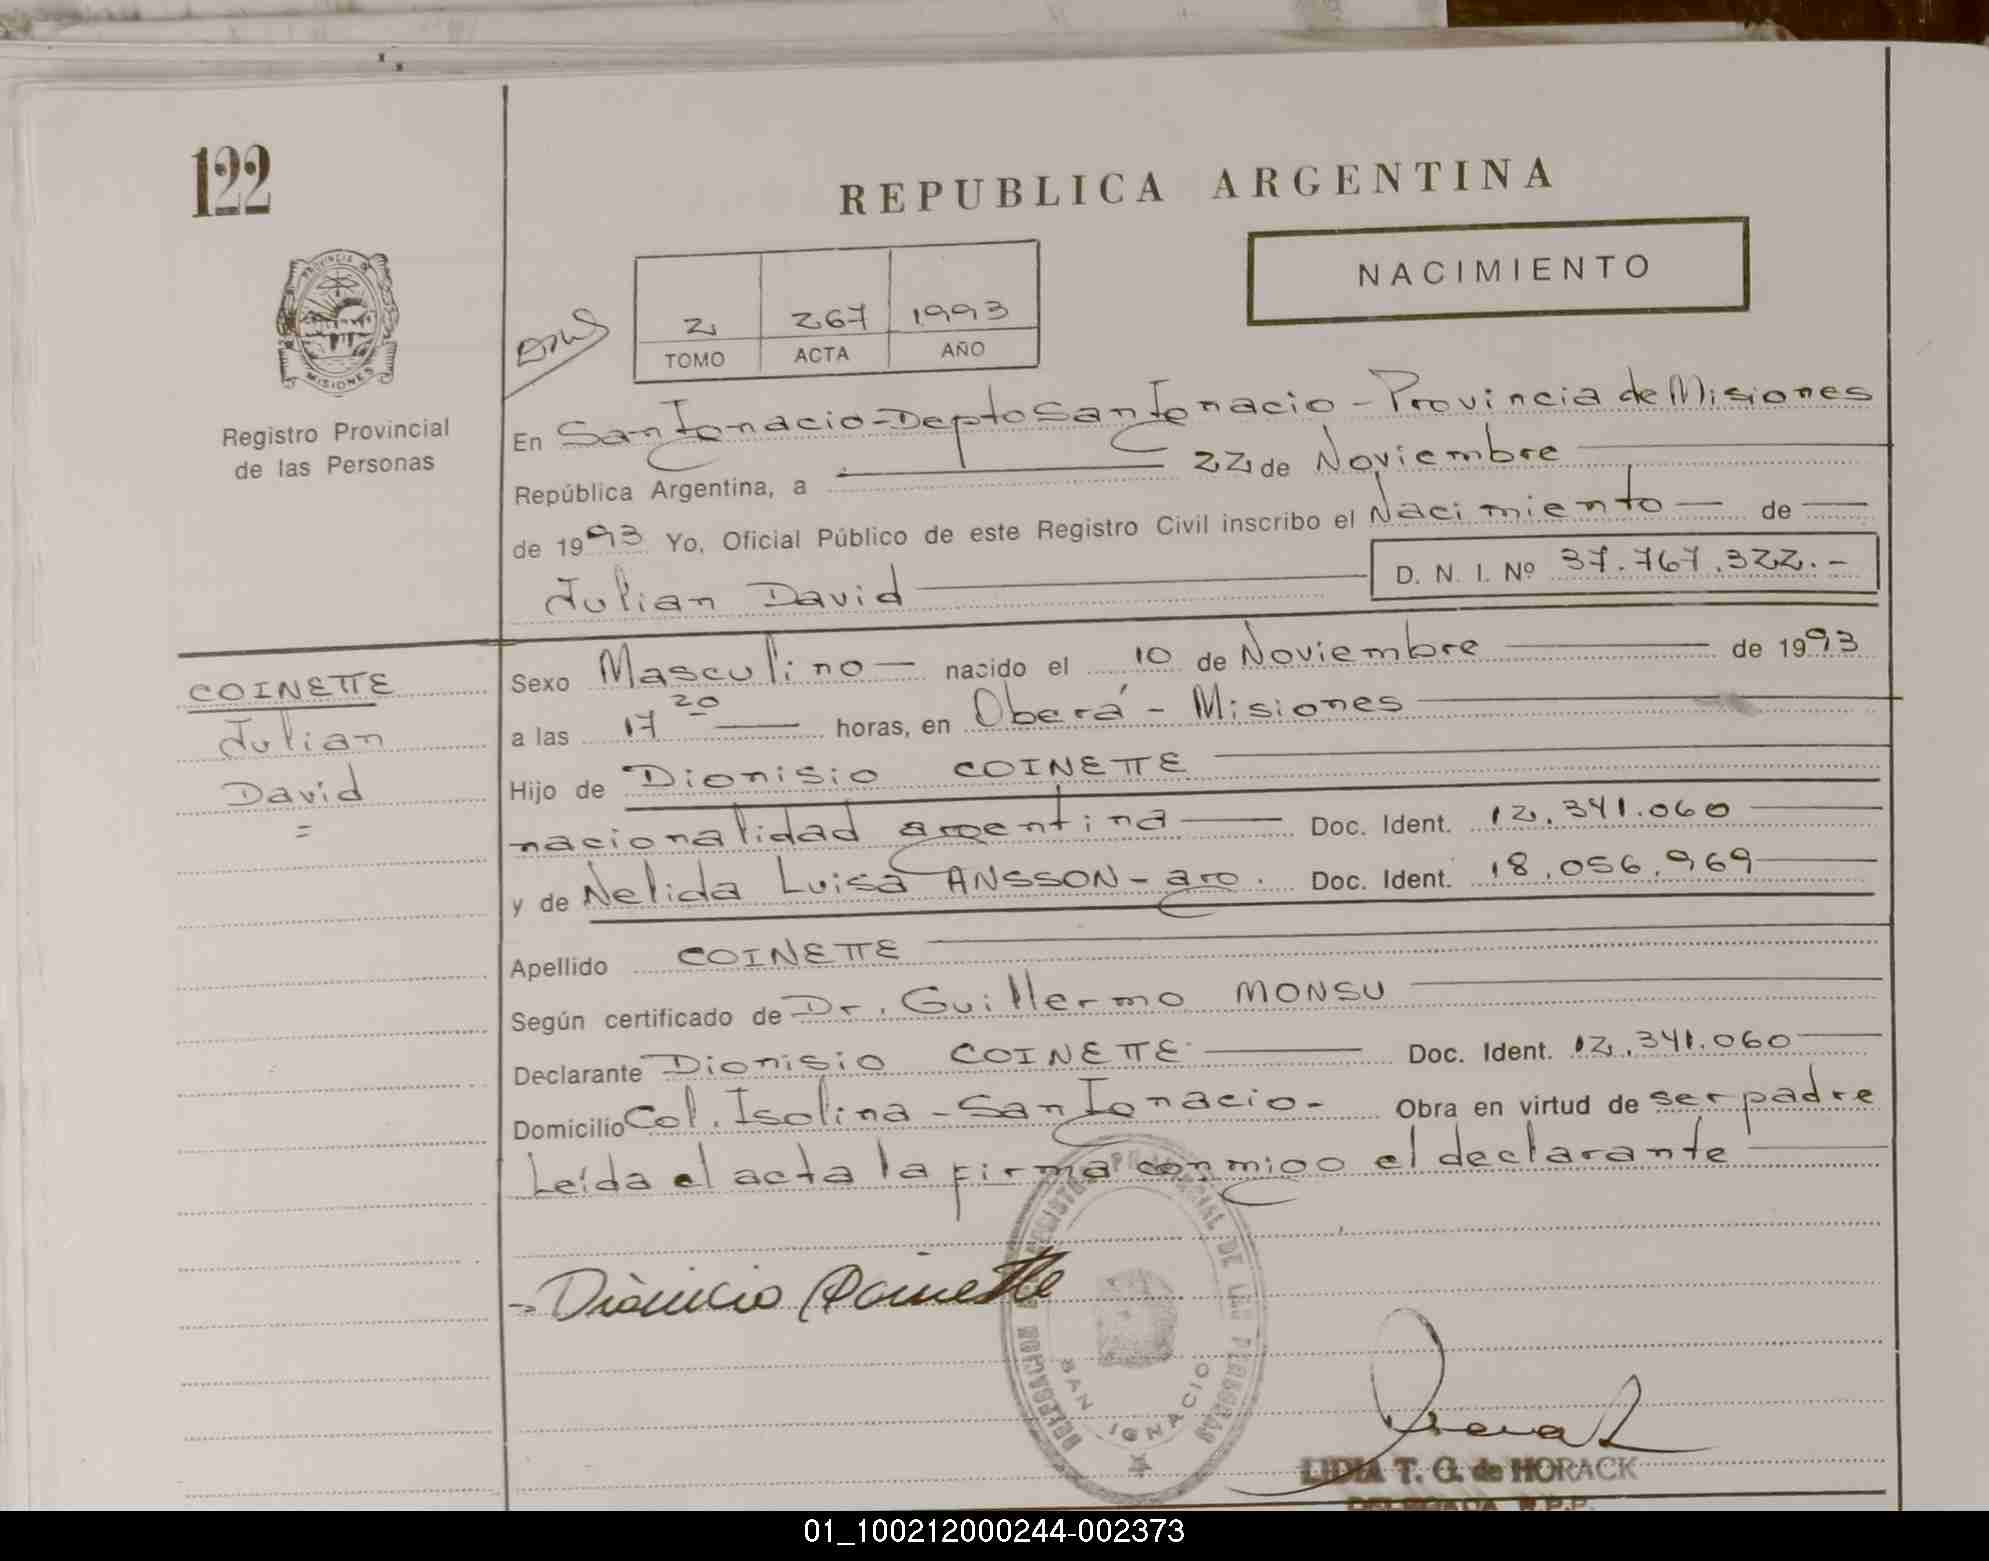 122
REPUBLICA ARGENTINA
NACIMIENTO
PROVINCIA DE
MISIONES
2 267 1993
TOMO ACTA AÑO
Registro Provincial
de las Personas
En San Ignacio - Depto San Ignacio - Provincia de Misiones
República Argentina, a 22 de Noviembre
de 1993 Yo, Oficial Público de este Registro Civil inscribo el Nacimiento de
Julian David
D. N. I. Nº 37.767.322.-
COINETTE
Julian
David
=
Sexo Masculino - nacido el 10 de Noviembre de 1993
a las 17 20 horas, en Oberá - Misiones
Hijo de Dionisio COINETTE
nacionalidad argentina Doc. Ident. 12.341.060
y de Nelida Luisa ANSSON - arg. Doc. Ident. 18.056.969
Apellido COINETTE
Según certificado de Dr. Guillermo MONSU
Declarante Dionisio COINETTE Doc. Ident. 12.341.060
Domicilio Col. Isolina - San Ignacio - Obra en virtud de ser padre
Leída el acta la firma conmigo el declarante
Dionicio Coinette
DELEGACION REGISTRO PROVINCIAL DE LAS PERSONAS
SAN IGNACIO
LIDIA T. G. de HORACK
DELEGADA R.P.P.
01_100212000244-002373